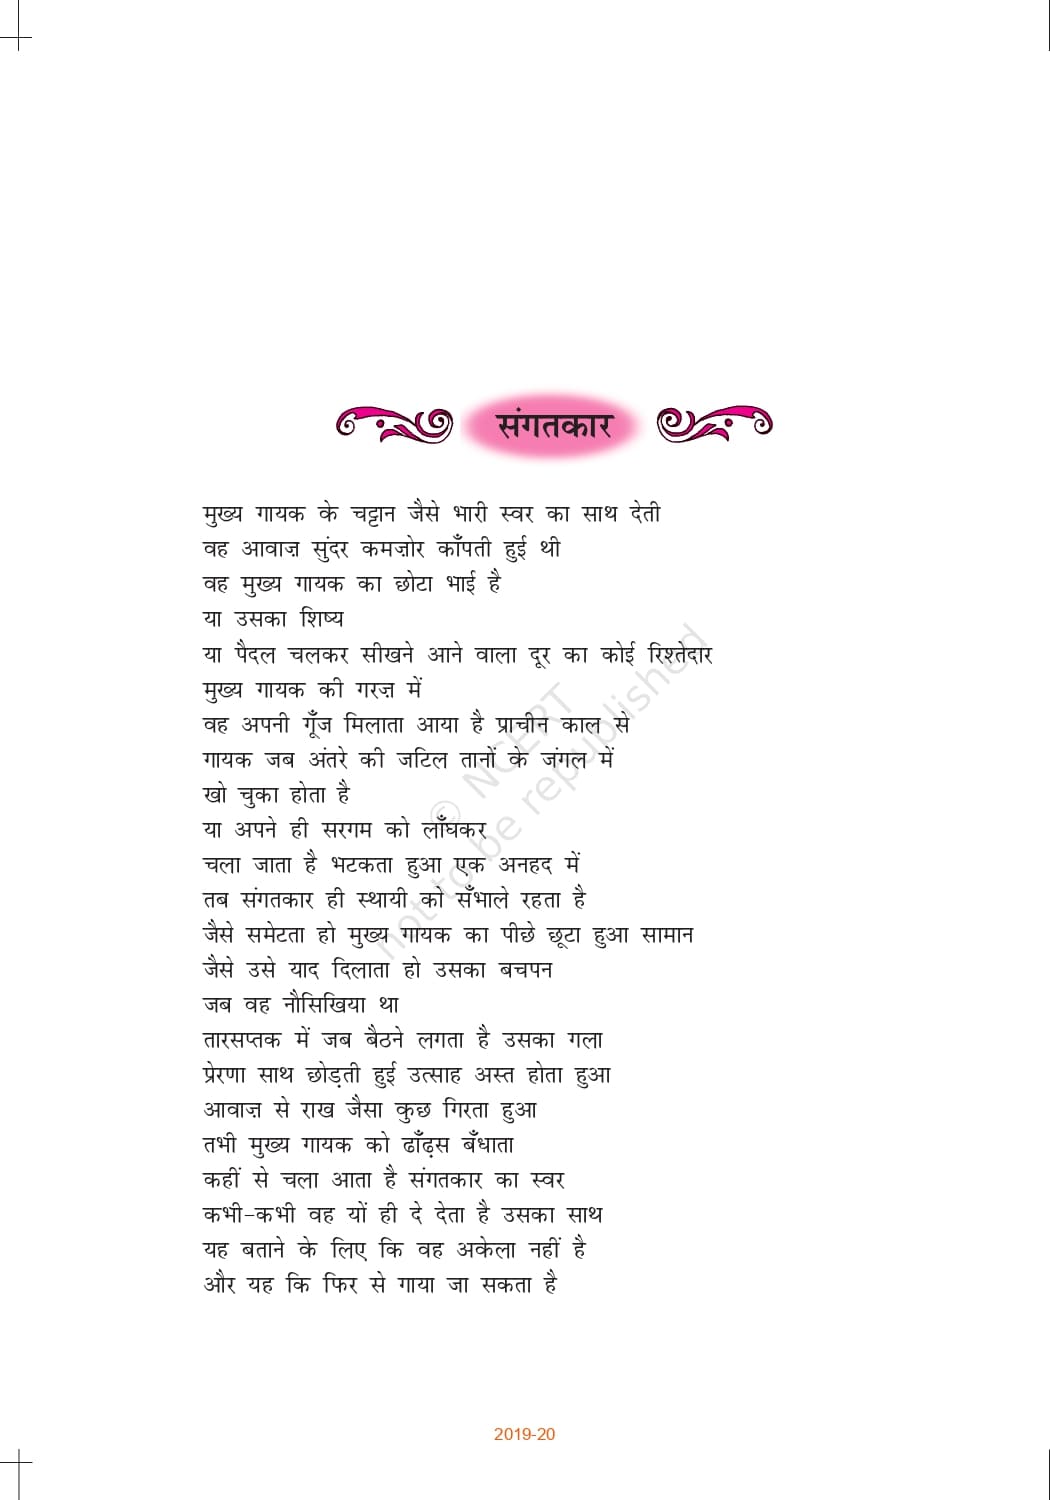 संगतकार
मुख्य गायक के चट्टान जैसे भारी स्वर का साथ देती
वह आवाज़ सुंदर कमज़ोर काँपती हुई थी
वह मुख्य गायक का छोटा भाई है
या उसका शिष्य
या पैदल चलकर सीखने आने वाला दूर का कोई रिश्तेदार
मुख्य गायक की गरज़ में
वह अपनी गूँज मिलाता आया है प्राचीन काल से
गायक जब अंतरे की जटिल तानों के जंगल में
खो चुका होता है
या अपने ही सरगम को लाँघकर
चला जाता है भटकता हुआ एक अनहद में
तब संगतकार ही स्थायी को सँभाले रहता है
जैसे समेटता हो मुख्य गायक का पीछे छूटा हुआ सामान
जैसे उसे याद दिलाता हो उसका बचपन
जब वह नौसिखिया था
तारसप्तक में जब बैठने लगता है उसका गला
प्रेरणा साथ छोड़ती हुई उत्साह अस्त होता हुआ
आवाज़ से राख जैसा कुछ गिरता हुआ
तभी मुख्य गायक को ढाँढ़स बँधाता
कहीं से चला आता है संगतकार का स्वर
कभी-कभी वह यों ही दे देता है उसका साथ
यह बताने के लिए कि वह अकेला नहीं है
और यह कि फिर से गाया जा सकता है
© NCERT
not to be republished
2019-20